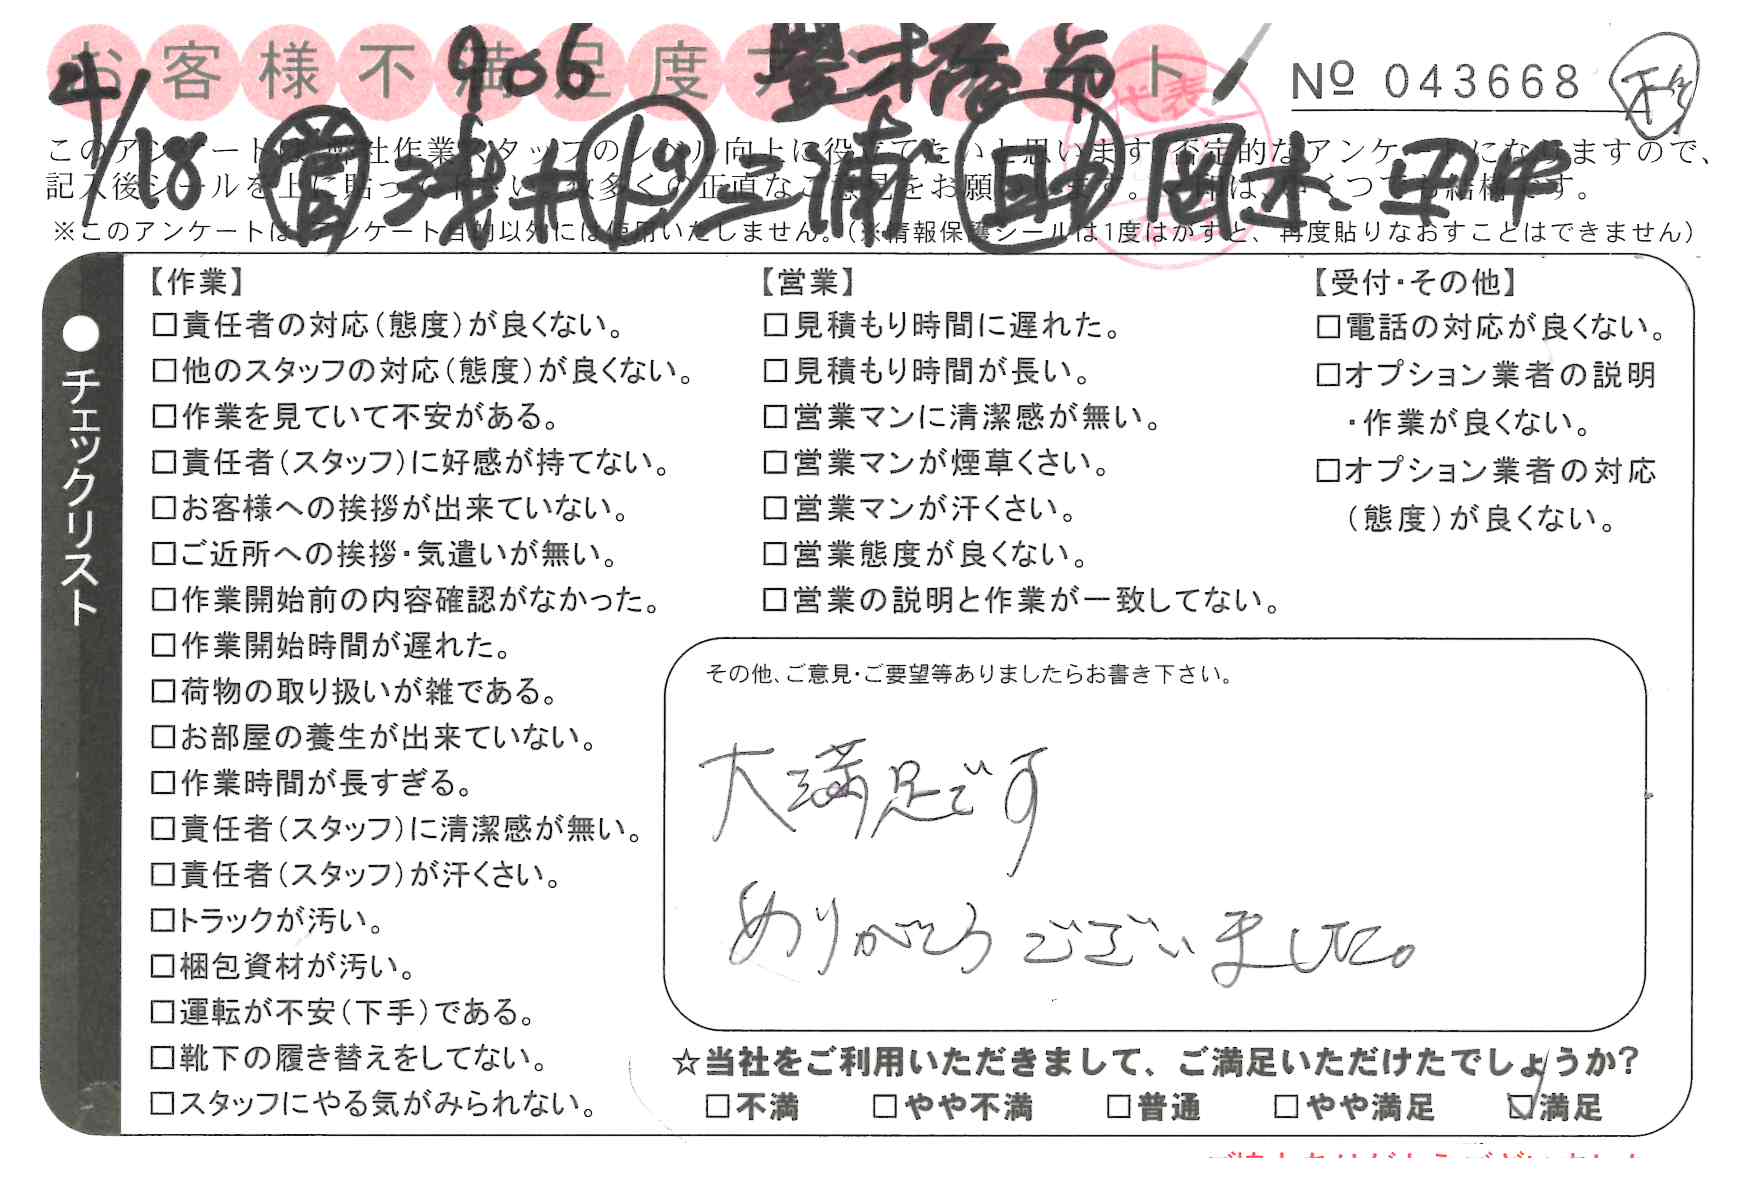 お客様不満足度アンケート
906 豊橋市
Nº 043668
4/18 営 浅井 ド 三浦 助 岡本 田中
代表
このアンケートは、弊社作業スタッフのレベル向上に役立てたいと思います。否定的なアンケートになりますので、
記入後シールを上に貼って下さい。数多くの正直なご意見をお願いします。
※このアンケートはアンケート目的以外には使用いたしません。(※情報保護シールは1度はがすと、再度貼りなおすことはできません)
●チェックリスト
【作業】
□責任者の対応(態度)が良くない。
□他のスタッフの対応(態度)が良くない。
□作業を見ていて不安がある。
□責任者(スタッフ)に好感が持てない。
□お客様への挨拶が出来ていない。
□ご近所への挨拶・気遣いが無い。
□作業開始前の内容確認がなかった。
□作業開始時間が遅れた。
□荷物の取り扱いが雑である。
□お部屋の養生が出来ていない。
□作業時間が長すぎる。
□責任者(スタッフ)に清潔感が無い。
□責任者(スタッフ)が汗くさい。
□トラックが汚い。
□梱包資材が汚い。
□運転が不安(下手)である。
□靴下の履き替えをしてない。
□スタッフにやる気がみられない。
【営業】
□見積もり時間に遅れた。
□見積もり時間が長い。
□営業マンに清潔感が無い。
□営業マンが煙草くさい。
□営業マンが汗くさい。
□営業態度が良くない。
□営業の説明と作業が一致してない。
【受付・その他】
□電話の対応が良くない。
□オプション業者の説明
・作業が良くない。
□オプション業者の対応
(態度)が良くない。
その他、ご意見・ご要望等ありましたらお書き下さい。
大満足です
ありがとうございました。
☆当社をご利用いただきまして、ご満足いただけたでしょうか?
□不満 □やや不満 □普通 □やや満足 ☑満足